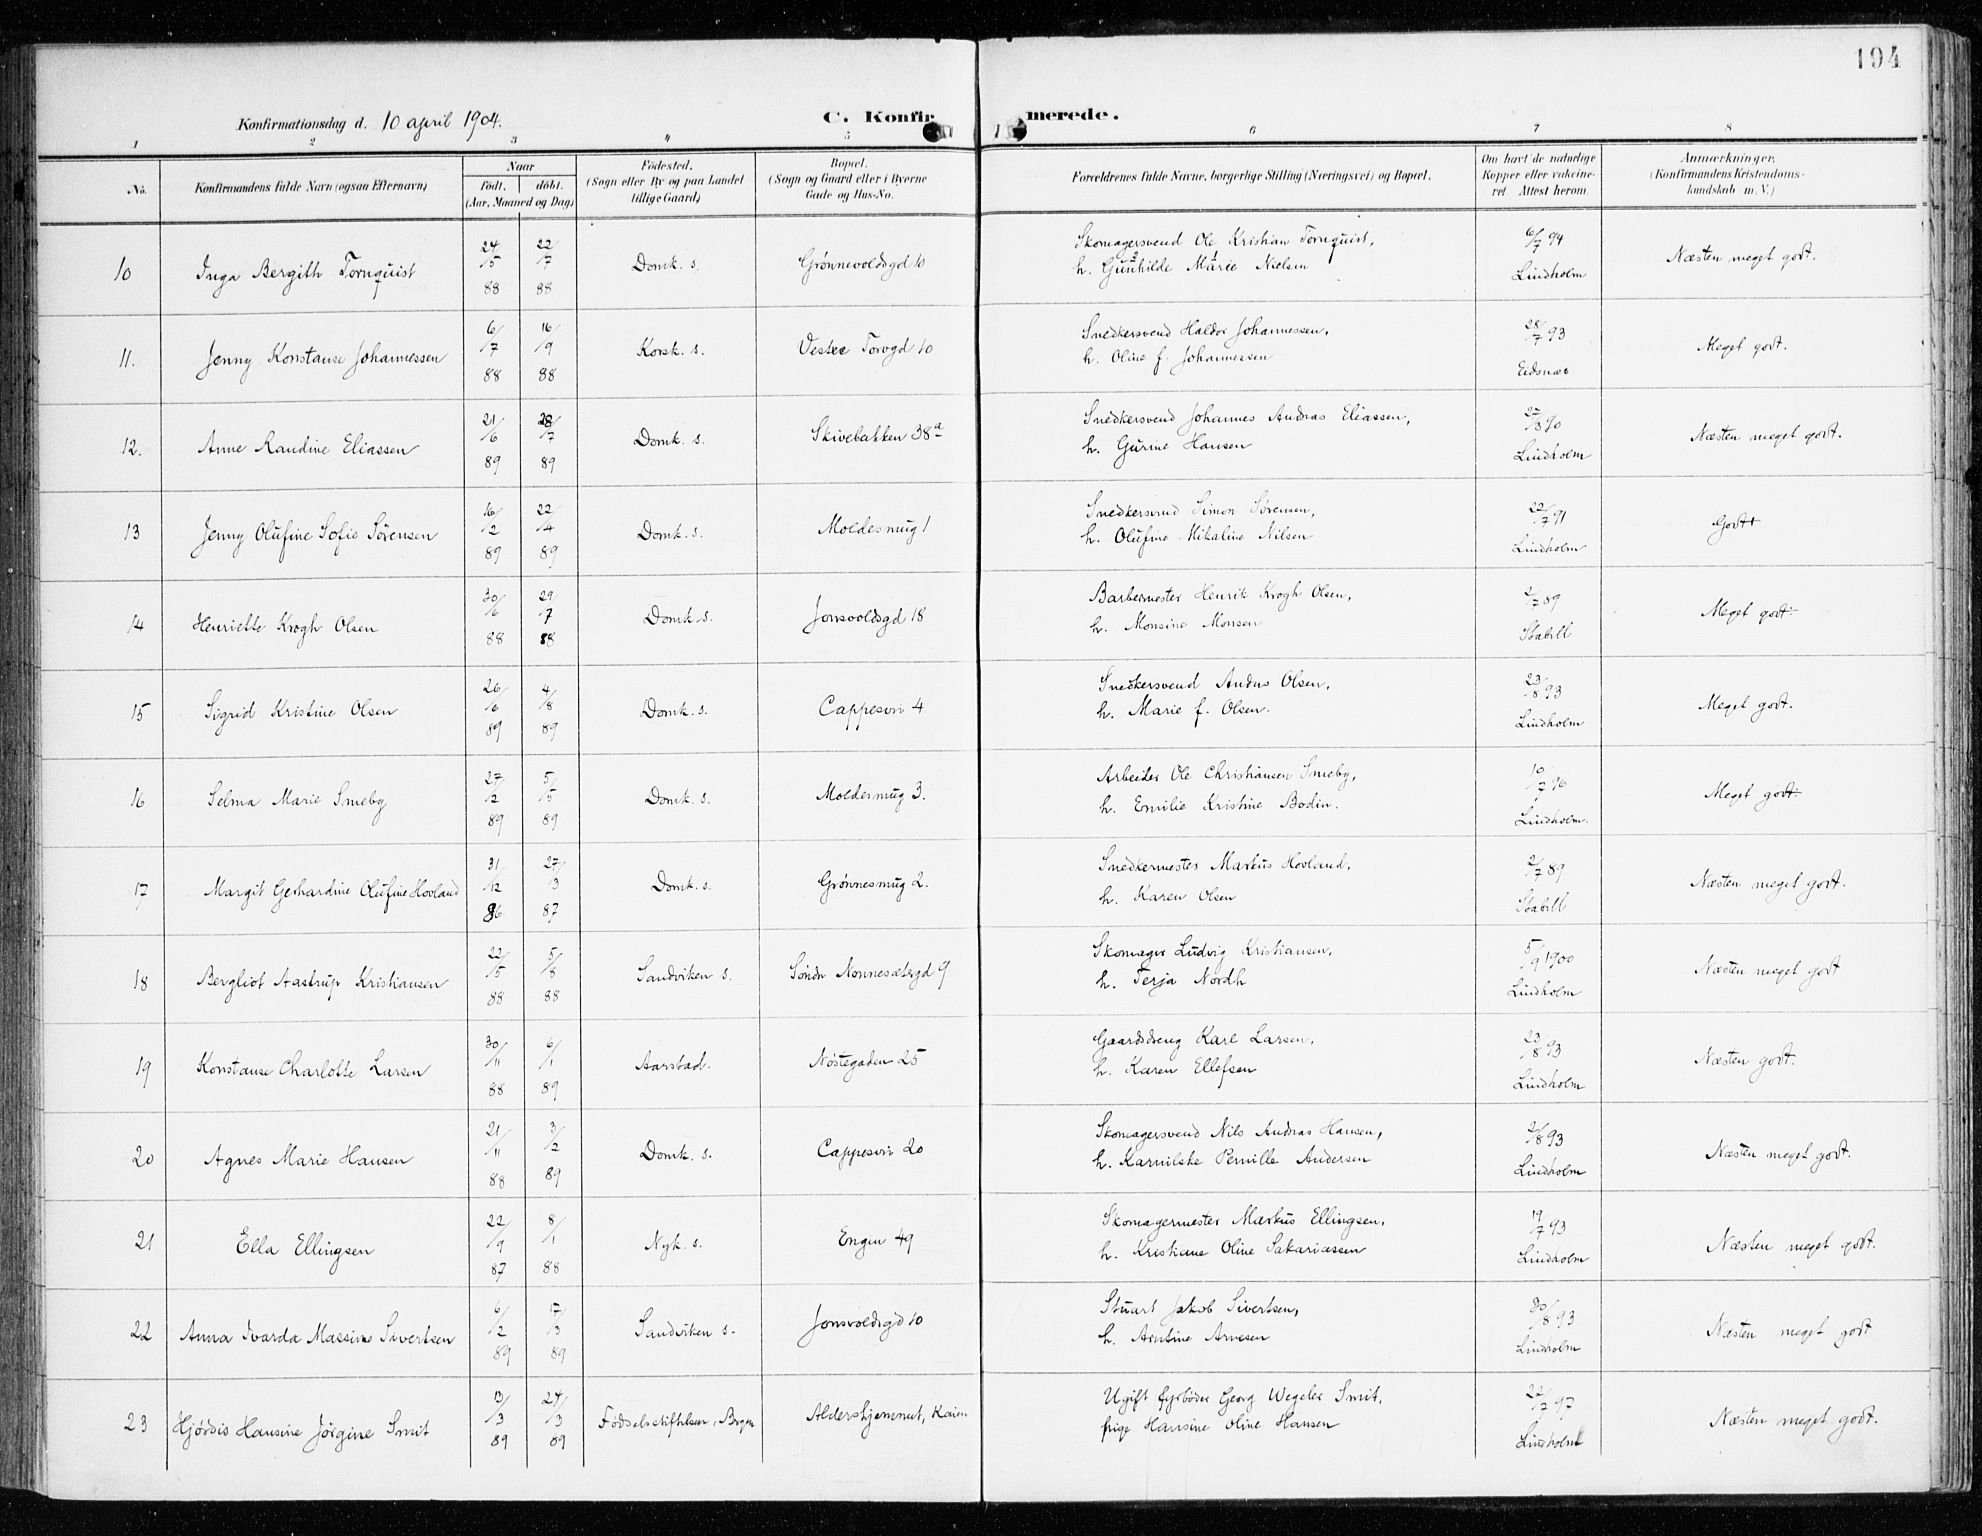 194
Konfirmationsdag d. 10 april 1904.
C. Konfirmerede.
1 2 3 4 5 6 7 8
No. Konfirmandens fulde Navn (ogsaa Efternavn) Naar Født. døbt. (Aar, Maaned og Dag) Fødested. (Sogn eller By og paa Landet tillige Gaard) Bopæl. (Sogn og Gaard eller i Byerne Gade og Hus-No. Forældrenes fulde Navne, borgerlige Stilling (Næringsvei) og Bopæl. Om havt de naturlige Kopper eller vakcineret. Attest herom. Anmærkninger. (Konfirmandens Kristendomskundskab m. V.)
10 Inga Bergith Tornquist 24/5 88 22/7 88 Domk. s. Grønnevoldsgd 10 Skomagersvend Ole Kristian Tornquist, h. Gunhilde Marie Nielsen 6/7 94 Lindholm Næsten meget godt.
11. Jenny Konstanse Johannessen 6/7 88 16/9 88 Korsk. s. Vestre Torvgd 10 Snedkersvend Haldor Johannessen, h. Oline f. Johannessen 28/7 93 Eidsnæs Meget godt.
12. Anne Randine Eliassen 21/6 89 28/7 89 Domk. s. Skivebakken 38a Snedkersvend Johannes Andras Eliassen, h. Gurine Hansen 22/3 90 Lindholm Næsten meget godt.
13 Jenny Olufine Sofie Sørensen 16/2 89 22/4 89 Domk. s. Moldesmug 1 Snedkersvend Simon Sørensen, h. Olufine Mikaline Nilsen 22/7 91 Lindholm Godt
14 Henriette Krogh Olsen 30/6 88 29/7 88 Domk. s. Jonsvoldsgd 18 Barbermester Henrik Krogh Olsen, h. Monsine Monsen 2/7 89 Stabell Meget godt.
15 Sigrid Kristine Olsen 26/6 89 4/8 89 Domk. s. Cappesvei 4 Snedkersvend Andus Olsen, h. Marie f. Olsen. 23/8 93 Lindholm Meget godt.
16 Selma Marie Smeby 27/2 89 5/5 89 Domk. s. Moldesmug 3. Arbeider Ole Christiansen Smeby, h. Emilie Kristine Bodin. 10/7 96 Lindholm. Meget godt.
17 Margit Gerhardine Olufine Hovland 31/12 86 27/3 87 Domk. s. Grønnesmug 2. Snedkermester Markus Hovland, h. Karen Olsen 2/7 89 Stabell Næsten meget godt.
18 Bergliot Aastrup Kristiansen 22/5 88 5/8 88 Sandviken s. Søndr Nonnesætergd 9 Skomager Ludvig Kristiansen, h. Terja Nordh 5/9 1900 Lindholm Næsten meget godt
19 Konstanse Charlotte Larsen 30/11 88 6/1 89 Aarstad. Nøstegaden 25 Gaardsdreng Karl Larsen, h. Karen Ellefsen 23/8 93 Lindholm Næsten godt.
20 Agnes Marie Hansen 21/11 88 3/2 89 Domk. s. Cappesvei 20 Skomagersvend Nils Andras Hansen, h. Karnilske Pernille Andersen 2/8 93 Lindholm Næsten meget godt.
21 Ella Ellingsen 22/9 87 8/1 88 Nyk. s. Engen 49 Skomagermester Markus Ellingsen, h. Kristiane Oline Sakariassen 19/7 93 Lindholm Næsten meget godt.
22 Anna Ivarda Massine Sivertsen 6/2 89 17/3 89 Sandviken s. Jonsvoldsgd 10 Stuart Jakob Sivertsen, h. Arntine Arnesen 30/8 93 Lindholm Næsten meget godt
23 Hjørdis Hansine Jørgine Smit 13/3 89 24/3 89 Fødselsstiftelsen, Brgen Aldershjemmet, Kaien Ugift fyrbøder Georg Wegeler Smit, pige Hansine Oline Hansen 22/7 97 Lindholm Næsten meget godt.